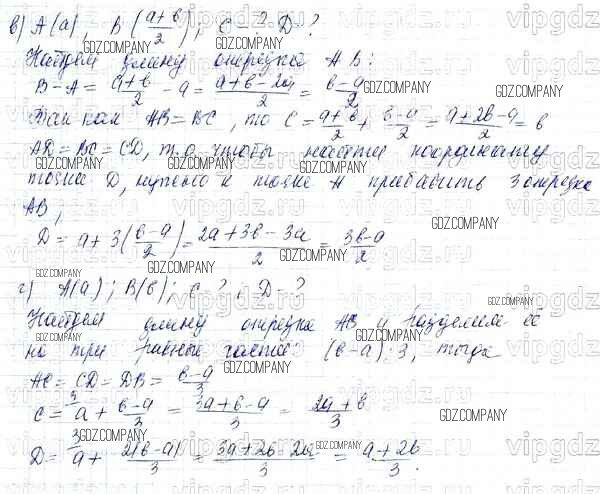 в) A(a), B((a+b)/2); C-? D=?
Найдем длину отрезка AB:
B-A = (a+b)/2 - a = (a+b-2a)/2 = (b-a)/2
Так как AB=BC, то C = (a+b)/2 + (b-a)/2 = (a+2b-a)/2 = b
AB=BC=CD, т.о. чтобы найти координату
точки D, нужно к точке A прибавить 3 отрезка
AB,
D = a+3((b-a)/2) = (2a+3b-3a)/2 = (3b-a)/2
г) A(a); B(b); C-? D=?
Найдем длину отрезка AB и разделим её
на три равные части: (b-a):3, тогда
AC=CD=DB= (b-a)/3
C = a + (b-a)/3 = (3a+b-a)/3 = (2a+b)/3
D = a + 2(b-a)/3 = (3a+2b-2a)/3 = (a+2b)/3.
GDZ.COMPANY
vipgdz.ru